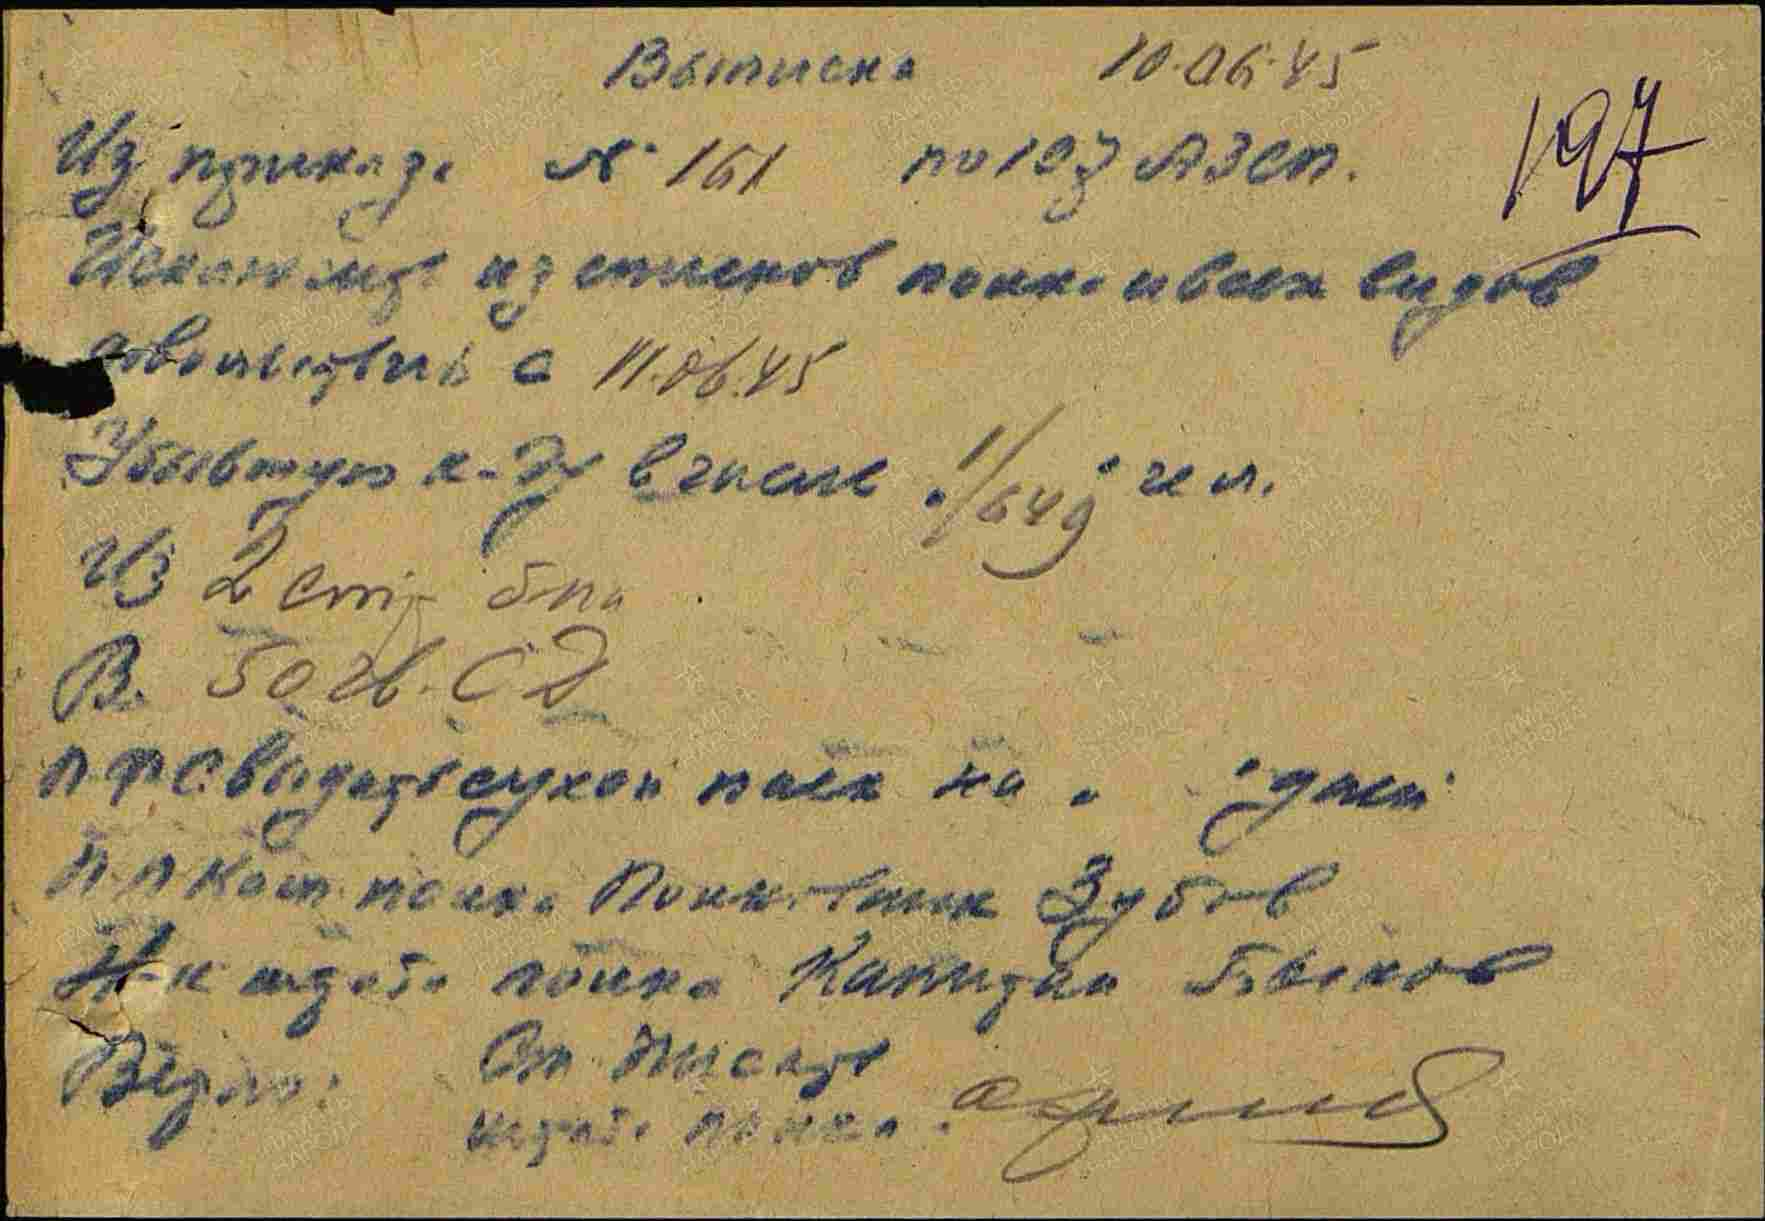 Выписка 10.06.45
197
Из приказа № 161 по 193 АЗСП.
Исключить из списков полка и всех видов
довольствия с 11.06.45
Убывшую к-ду в числе 1/649 чел.
Из 2 стр б-на
В. 50 гв. СД
ПФС выдать сухой паек на дней
п.п Ком. полка Полковник Зубов
Н-к штаба полка Капитан Быков
Верно: Ст. Писарь
штаба полка.